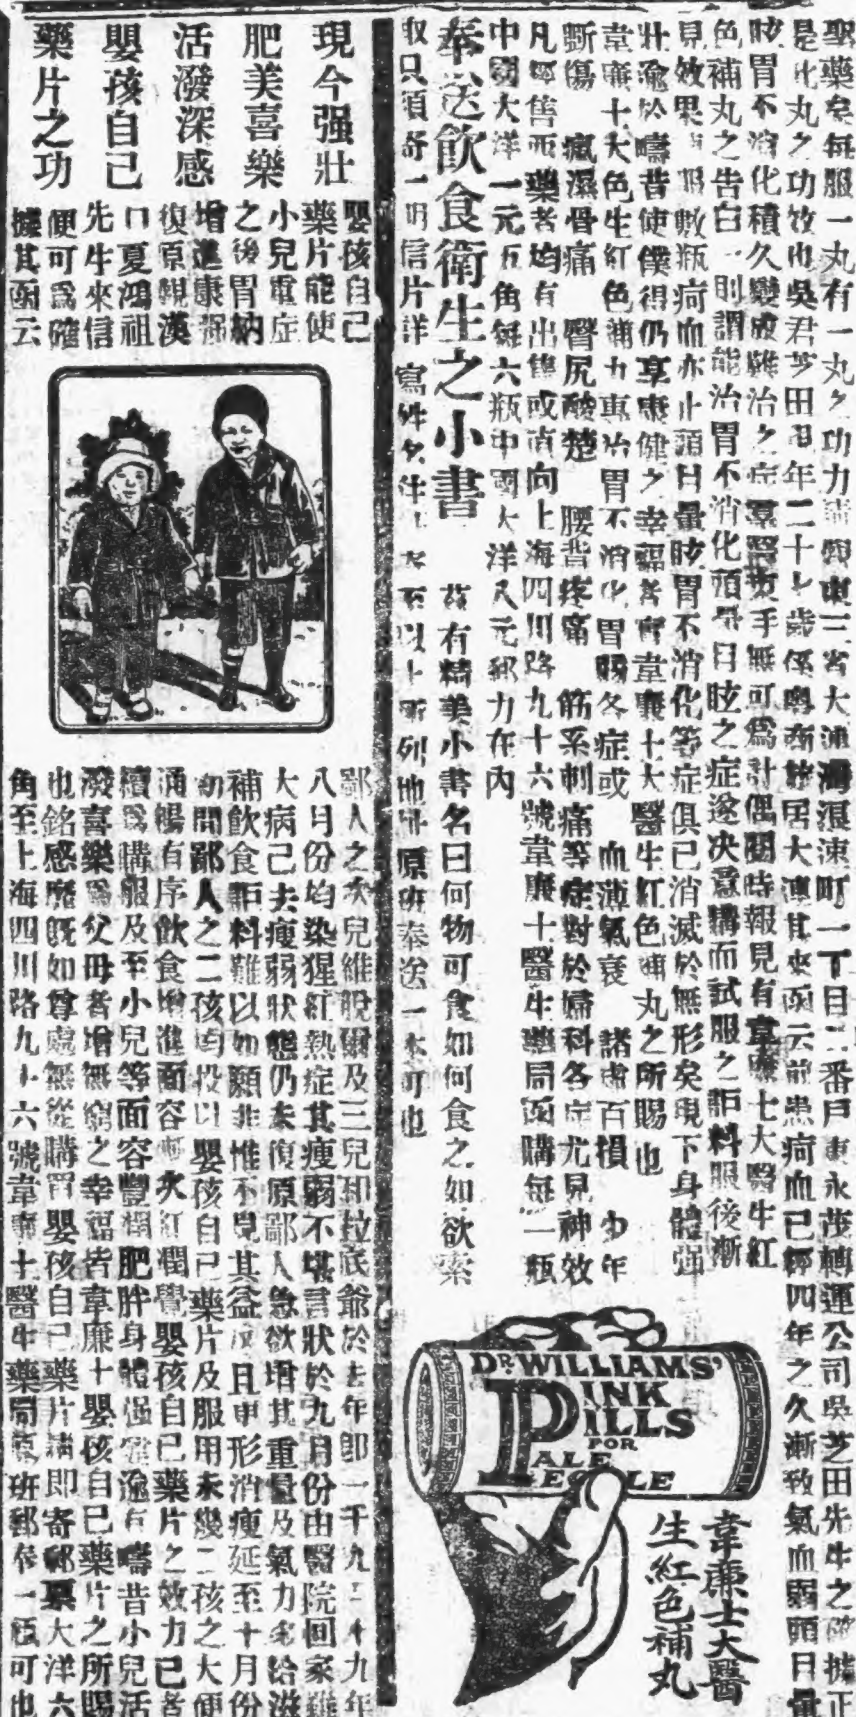 聖藥矣每服一丸有一丸之功力請觀東三省大連灣浪速町一丁目二番戶東永茂轉運公司吳芝田先生之確據正
是此丸之功效也吳君芝田現年二十七歲係粵西旅居大連其來函云前患痾血已經四年之久漸致氣血弱頭目暈
眩胃不消化積久變成難治之症羣醫束手無可為計偶閱時報見有韋廉士大醫生紅
色補丸之告白一則謂能治胃不消化頭暈目眩之症遂决意購而試服之詎料服後漸
見效果再服數瓶痾血亦止頭目暈眩胃不消化等症俱已消滅於無形矣現下身體强
壯逾於疇昔使僕得仍享康健之幸福者實韋廉士大醫生紅色補丸之所賜也
韋廉士大色生紅色補力專治胃不消化胃腸各症或 血薄氣衰 諸虛百損 少年
斷傷 瘋濕骨痛 臀尻酸楚 腰背疼痛 筋系刺痛等症對於婦科各症尤見神效
凡經售西藥者均有出售或直向上海四川路九十六號韋廉士醫生藥局函購每一瓶
中國大洋一元五角每六瓶中國大洋八元郵力在內
奉送飲食衛生之小書 茲有精美小書名曰何物可食如何食之如欲索
取只須寄一明信片詳寫姓名住 至以上所列地址原班奉送一本可也
DR. WILLIAMS'
PINK
PILLS
FOR
PALE
PEOPLE
韋廉士大醫
生紅色補丸
現今强壯
肥美喜樂
活潑深感
嬰孩自己
藥片之功
嬰孩自己
藥片能使
小兒重症
之後胃納
增進康强
復原觀漢
口夏鴻祖
先生來信
便可爲確
據其函云
鄙人之次兒維脫爾及三兒和拉底爺於去年即一千九百十九年
八月份均染猩紅熱症其瘦弱不堪言狀於九月份由醫院回家雖
大病已去瘦弱狀態仍未復原鄙人急欲增其重量及氣力多給滋
補飲食詎料難以如願非惟不見其益反且更形消瘦延至十月份
初間鄙人之二孩均投以嬰孩自己藥片及服用未幾二孩之大便
通暢有序飲食增進面容漸次紅潤覺嬰孩自己藥片之效力已著
續爲購服及至小兒等面容豐潤肥胖身體强健逾於疇昔小兒活
潑喜樂爲父母者增無窮之幸福皆韋廉士嬰孩自己藥片之所賜
也銘感靡旣如尊處無從購買嬰孩自己藥片請即寄郵票大洋六
角至上海四川路九十六號韋廉士醫生藥局原班郵奉一瓶可也